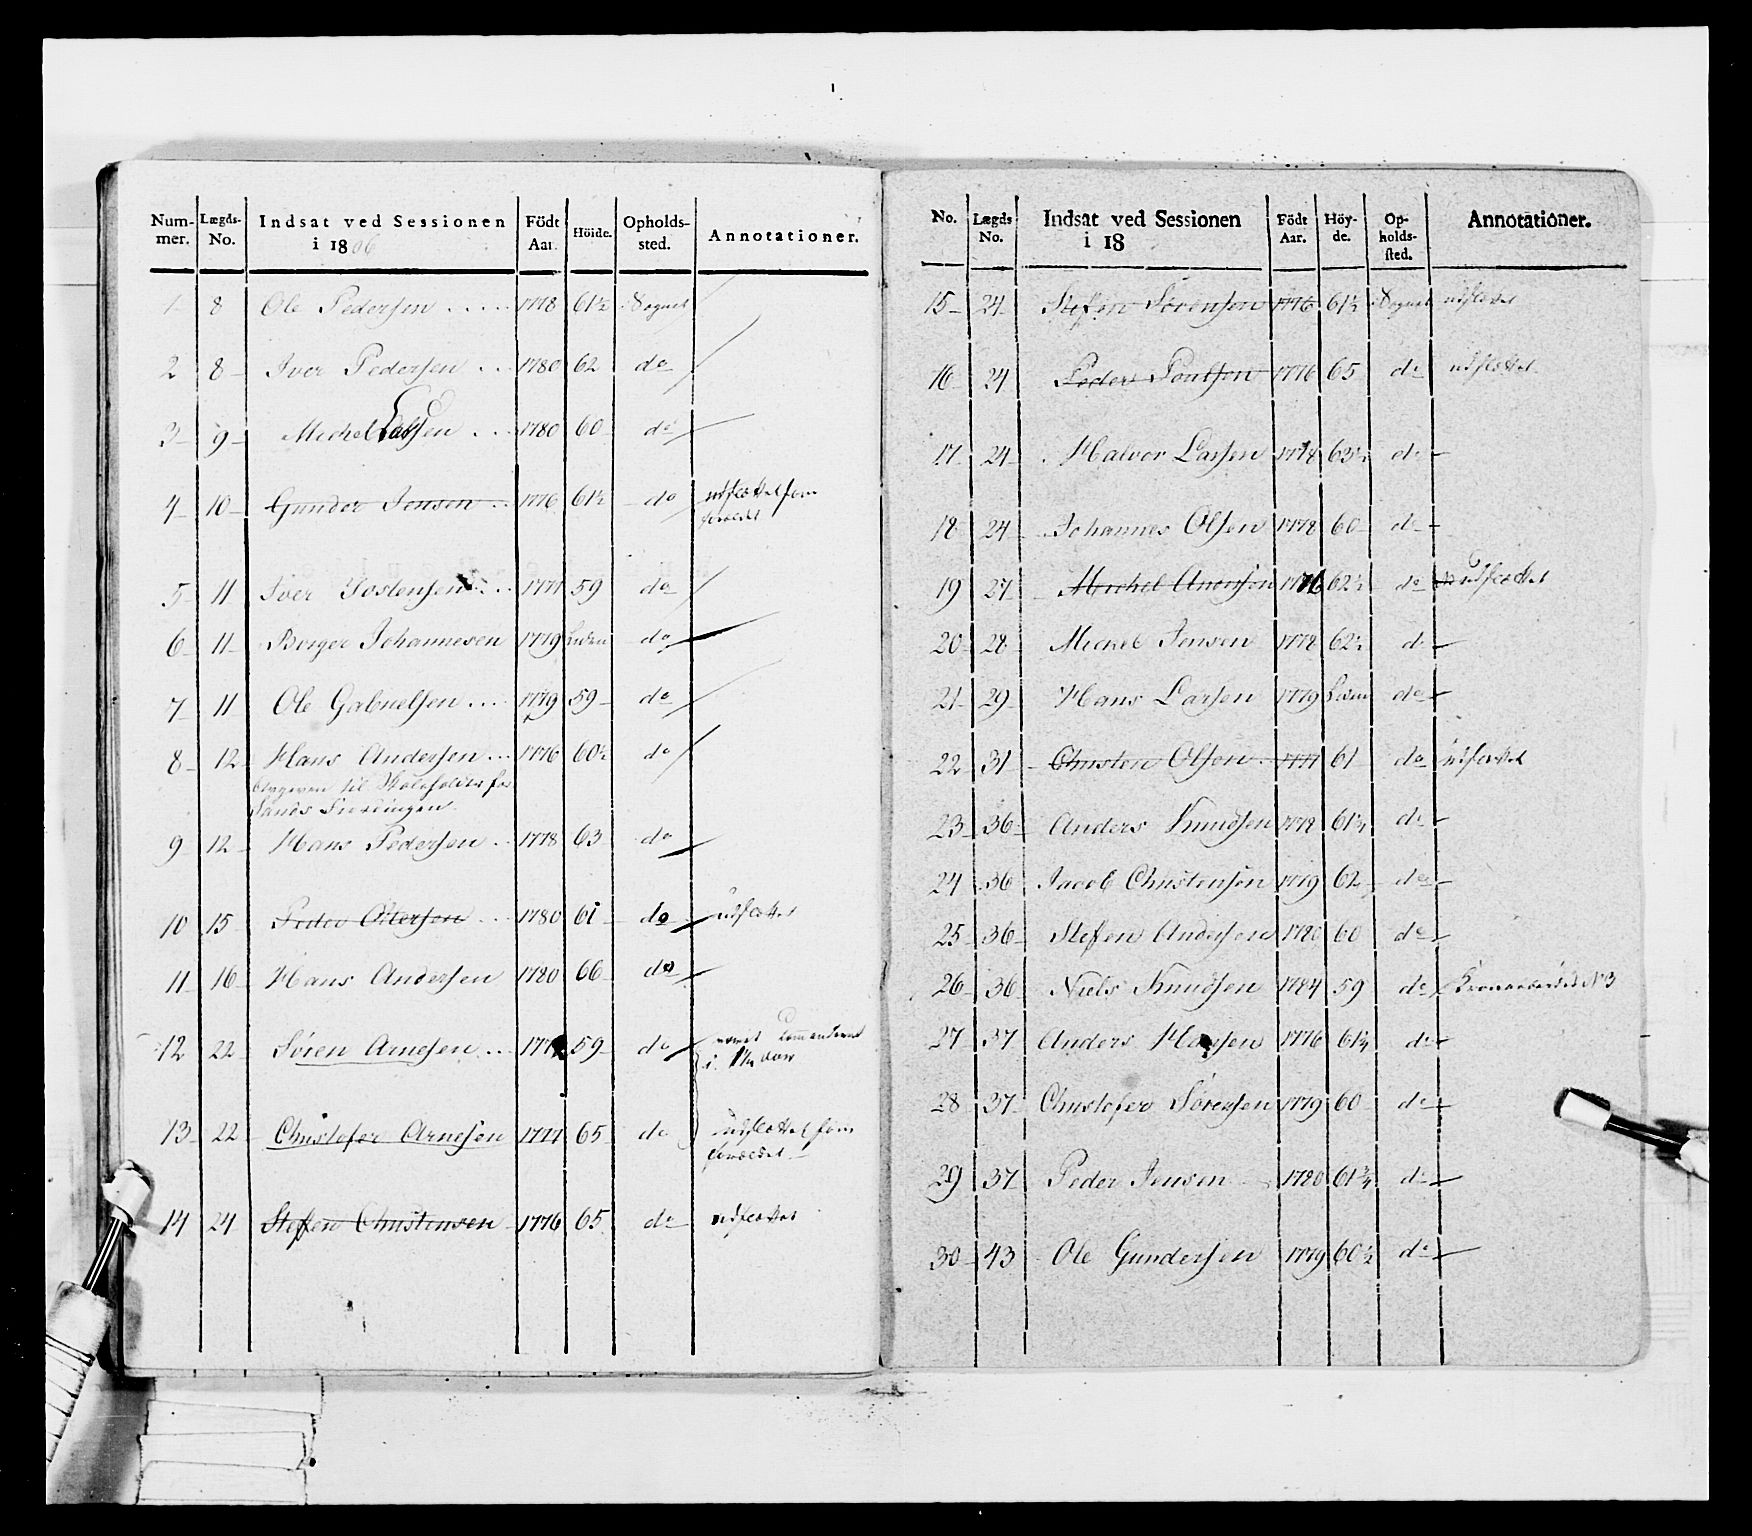 Num- Lægds- Indsat ved Sessionen Födt Höide. Opholds- Annotationer.
mer. No. i 1806 Aar. sted.
1 8 Ole Pedersen 1778 61½ Sognet
2 8 Iver Pedersen 1780 62 do
3 9 Michel Larsen 1780 60 do
4 10 Gunder Jensen 1776 61½ do udslettet som
forældet
5 11 Iver Tostensen 1777 59 do
6 11 Berger Johannesen 1779 Liden do
7 11 Ole Gabrielsen 1779 59 do
8 12 Hans Andersen 1776 60½ do
Sands Fierdingen
9 12 Hans Pedersen 1778 63 do
10 15 Peder Ottersen 1780 61 do udslettet
11 16 Hans Andersen 1780 66 do
12 22 Sören Arnesen 59 do været Commanderet
i 1½ aar
13 22 Christofer Arnesen 1777 65 do udslettet som
forældet
14 24 Stefen Christensen 1776 65 do udslettet
No. Lægds Indsat ved Sessionen Födt Höy- Op- Annotationer.
No. i 18 Aar. de. holds-
sted.
15 24 Stefen Sörensen 1776 61½ Sognet udslettet
16 24 Peder Poulsen 1776 65 do udslettet
17 24 Halvor Larsen 1778 63½ do
18 24 Johannes Olsen 1778 60 do
19 27 Michel Andersen 1776 62½ do udslettet
20 28 Michel Jensen 1778 62½ do
21 29 Hans Larsen 1779 Liden do
22 31 Christen Olsen 1777 61 do udslettet
23 36 Anders Knudsen 1779 61¼ do
24 36 Jacob Christensen 1779 62 do
25 36 Stefen Andersen 1780 60 do
26 36 Niels Knudsen 1784 59 do
27 37 Anders Hansen 1776 61¼ do
28 37 Christofer Sörensen 1779 60 do
29 37 Peder Jensen 1780 61¾ do
30 43 Ole Gundersen 1779 60½ do